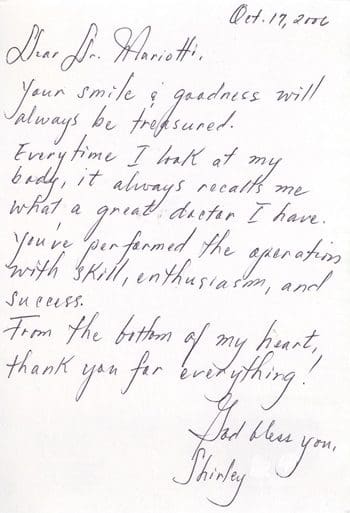 Oct. 17, 2006
Dear Dr. Mariotti,
Your smile & goodness will
always be treasured.
Everytime I look at my
body, it always recalls me
what a great doctor I have.
You've performed the operation
with skill, enthusiasm, and
success.
From the bottom of my heart,
thank you for everything!
God bless you,
Shirley